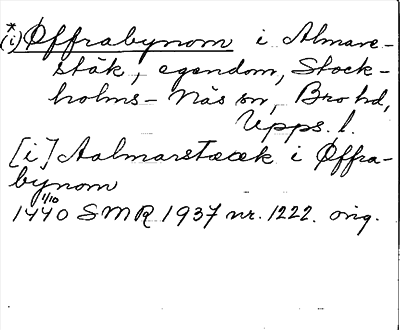 *(i) Øffrabynom i Almare-
stäk, egendom, Stock-
holms-Näs sn, Bro hd,
Upps. l.
[i] Aalmarstææk i Øffra-
bynom
1440 1/10 SMR 1937 nr. 1222. orig.